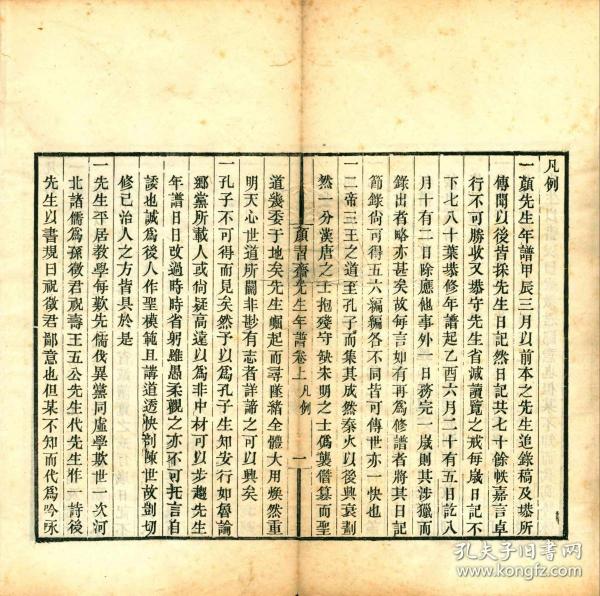 凡例
一顏先生年譜甲辰三月以前本之先生追錄稿及塨所
傳聞以後皆採先生日記然日記共七十餘帙嘉言卓
行不可勝收又塨守先生省減讀覽之戒每歲日記不
下七八十葉塨修年譜起乙酉六月二十有五日訖八
月十有二日除應他事外一日務完一歲則其涉獵而
錄出者略亦甚矣故每言如有再爲修譜者將其日記
節錄尙可得五六編編各不同皆可傳世亦一快也
一二帝三王之道至孔子而集其成然秦火以後興衰劃
然一分漢唐之士抱殘守缺宋明之士僞襲僭篡而聖
顏習齋先生年譜卷上凡例
一
道幾委于地矣先生崛起而尋墜緒全體大用煥然重
明天心世道所關非尠有志者詳諦之可以興矣
一孔子不可得而見矣然予以爲孔子生知安行如魯論
鄉黨所載人或尙疑高遠以爲非中材可以步趨先生
年譜日日改過時時省躬雖愚柔觀之亦不可托言自
諉也誠爲後人作聖模範且講道透快剖陳世故剴切
修己治人之方皆具於是
一先生平居教學每歎先儒伐異黨同虛學欺世一次河
北諸儒爲孫徵君祝壽王五公先生代先生作一詩後
先生以書規曰祝徵君鄙意也但某不知而代爲吟永
孔夫子旧书网
www.kongfz.com